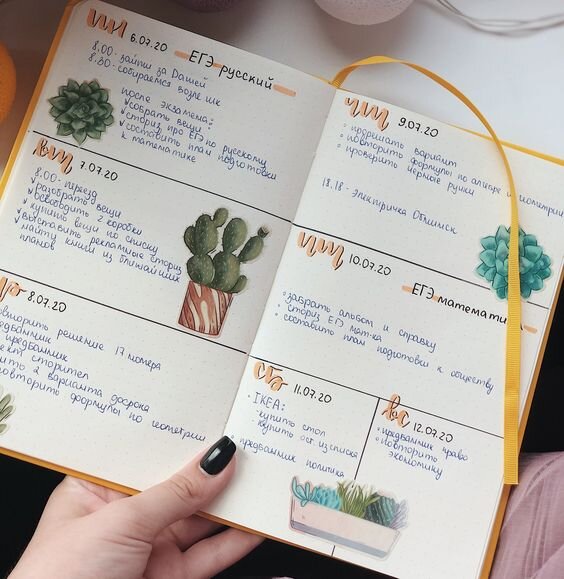 пн 6.07.20
ЕГЭ русский
8.00 - зайти за Дашей
8.30 - собираемся возле шк
после экзамена:
собрать вещи
сториз про ЕГЭ по русскому
составить план подготовки
к математике
вт 7.07.20
8.00 - переезд
разобрать вещи
освободить 2 коробки
купить вещи по списку
выставить рекламные сториз
найти книги из ближайших
планов
ср 8.07.20
повторить решение 17 номера
предбанник
предбанник
2 варианта досрока
повторить формулы по геометрии
чт 9.07.20
прорешать вариант
повторить формулы по алгебре и геометрии
проверить чёрные ручки
18.18 - Электричка Обнинск
пт 10.07.20
ЕГЭ математика
забрать альбом и справку
сториз ЕГЭ мат-ка
составить план подготовки к обществу
сб 11.07.20
IKEA:
- купить стол
- купить ост. из списка
предбанник политика
вс 12.07.20
предбанник право
повторить
экономику